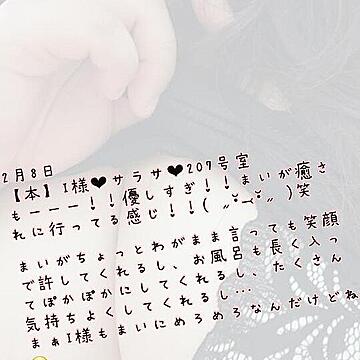 2月8日
【本】I様♥サラサ♥209号室
もーーー！！優しすぎ！！まいが癒さ
れに行ってる感じ！！( 〃︶〃 )笑
まいがちょっとわがまま言っても笑顔
で許してくれるし、お風呂も長く入っ
てぽかぽかにしてくれるし、たくさん
気持ちよくしてくれるし…
まぁI様もまいにめろめろなんだけどね